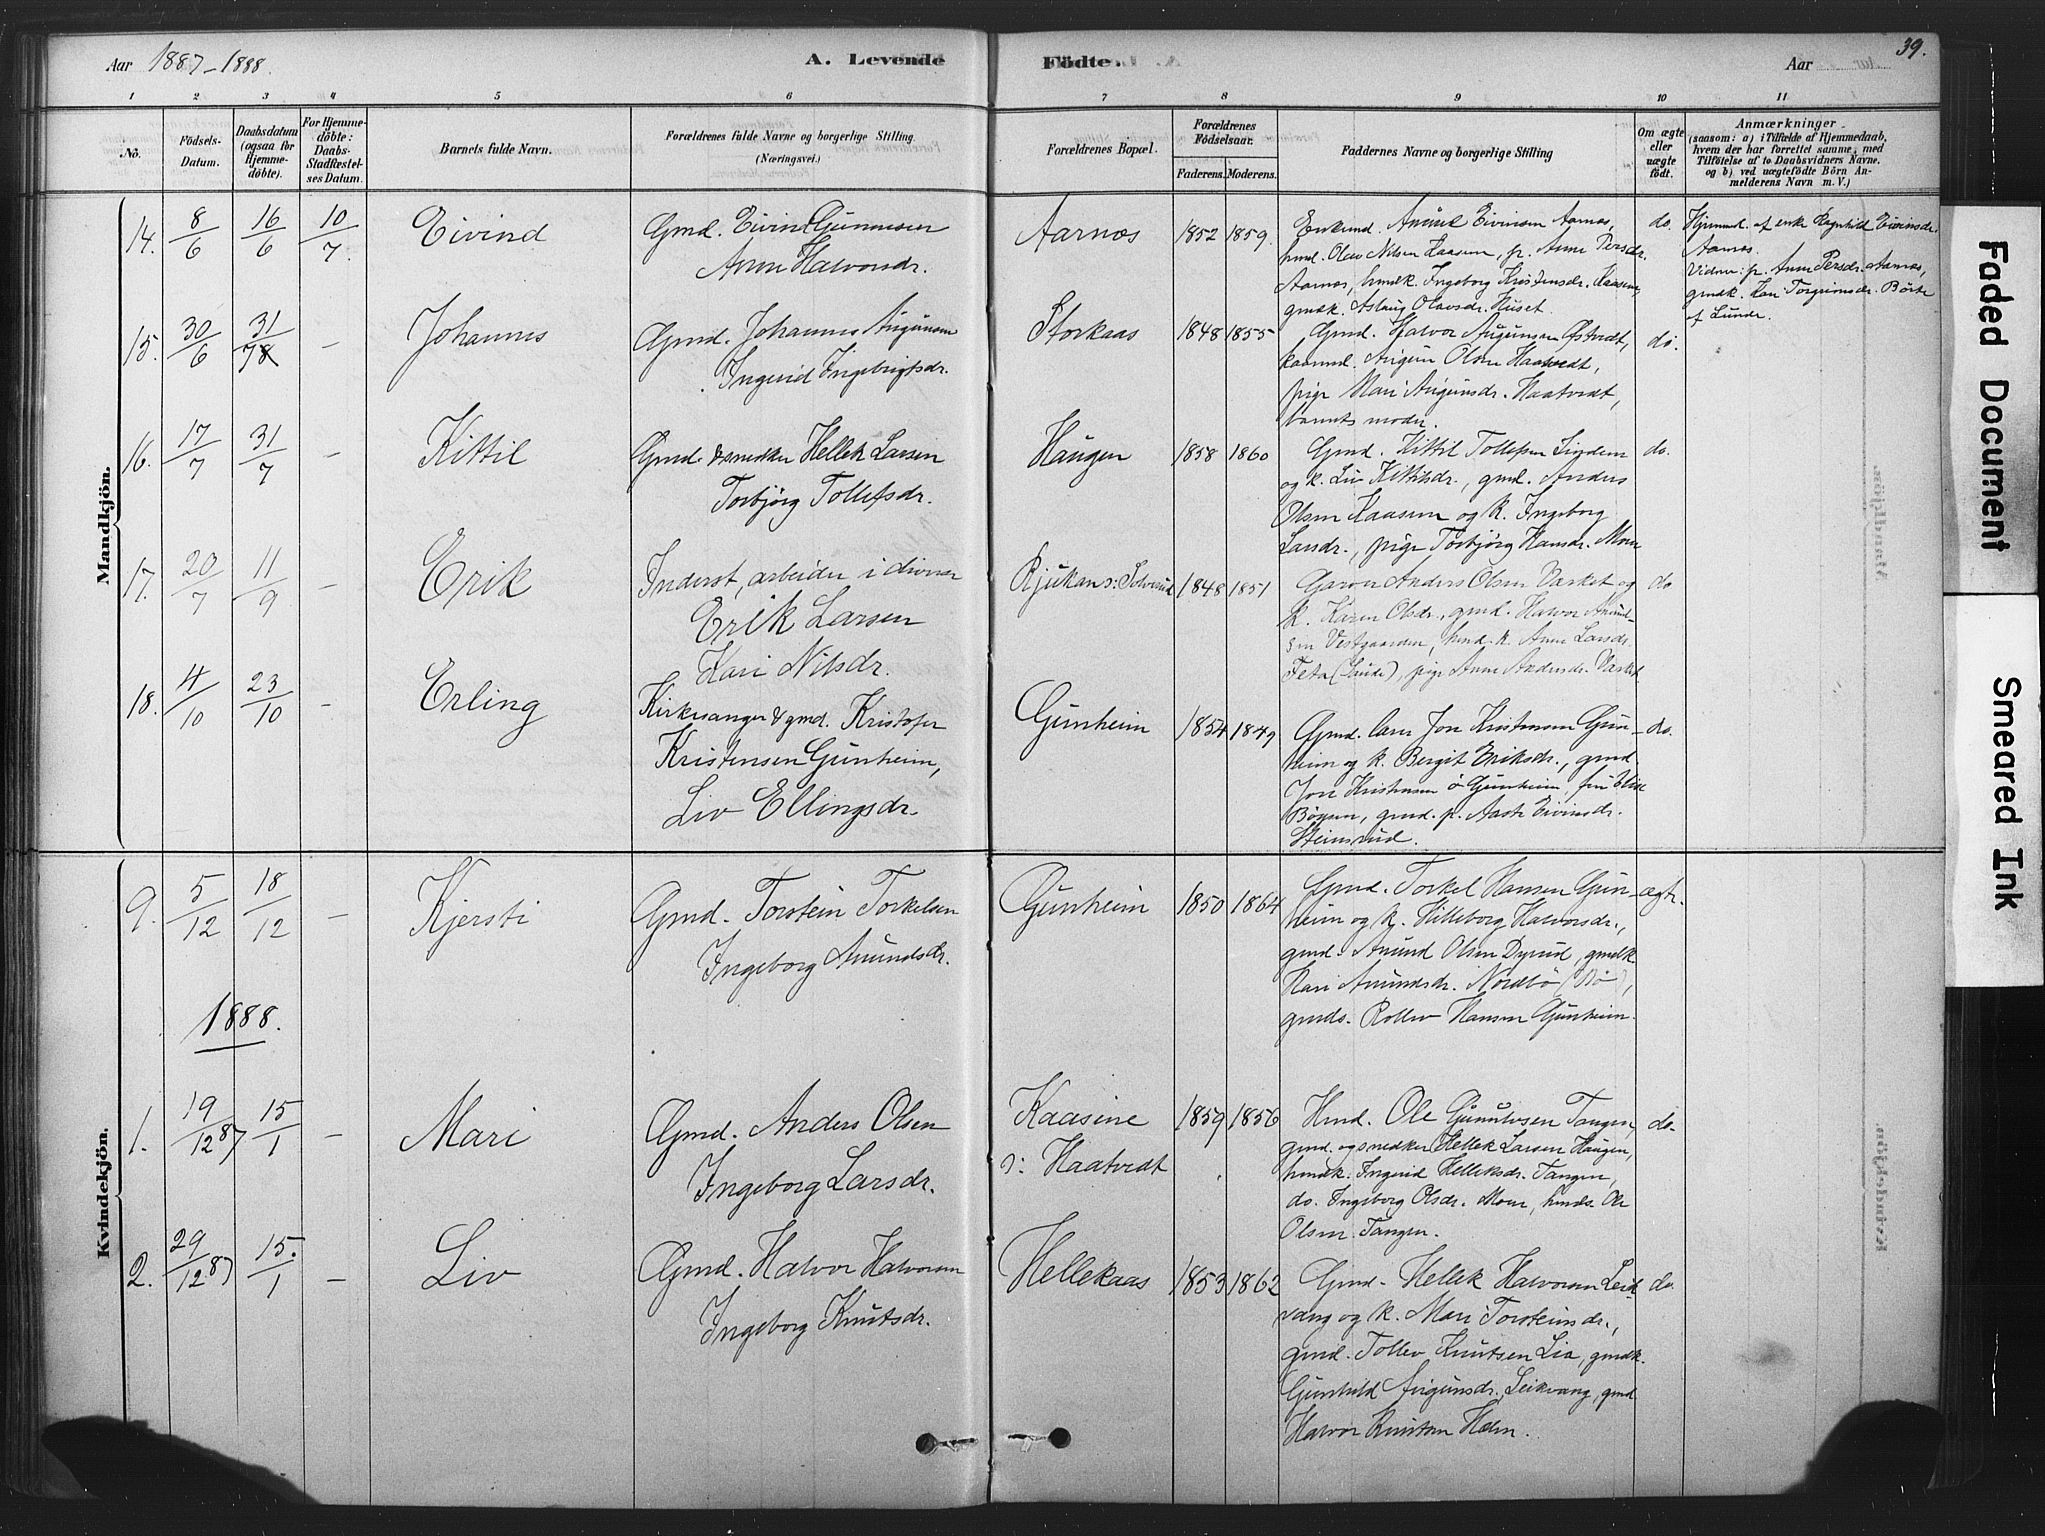 Aar 1887-1888.
A. Levende Födte.
Aar
39.
1 2 3 4 5 6 7 8 9 10 11
No.
Födsels-Datum.
Daabsdatum (ogsaa for Hjemmedöbte).
For Hjemmedöbte: Daabs-Stadfæstelses Datum.
Barnets fulde Navn.
Forældrenes fulde Navne og borgerlige Stilling. (Næringsvei.)
Forældrenes Bopæl.
Forældrenes Födselsaar.
Faderens. Moderens.
Faddernes Navne og borgerlige Stilling
Om ægte eller uægte födt.
Anmærkninger
(saasom: a) i Tilfælde af Hjemmedaab, hvem der har forrettet samme, med Tilföielse af to Daabsvidners Navne. og b) ved uægtefödte Börn Anmelderens Navn m. V.)
Mandkjön.
14. 8/6 16/6 10/7.
Eivind
Gmd. Eivind Gunnusen
Anne Halvorsdr.
Aarnos 1852 1859.
Enkemd. Amund Eivinsen Aarnos,
hmd. Olav Nilsen Kaasen, p. Anne Persdr.
Aarnos, hmdk. Ingeborg Kristensdr. Kaasen,
gmdk. Aslaug Olavsdr. Huset.
do.
Hjemmed. af enke Ragnhild Eivindsdr.
Aarnos.
Vidner: p. Anne Persdr. Aarnos,
gmdk. Kari Torgrimsdr. Börte
af Lunde.
15. 30/6 31/7 -
Johannes
Gmd. Johannes Augunsen
Ingerid Ingebrigtsdr.
Storkaas 1848 1855
Gmd. Halvor Augunsen Østvedt,
kaarmd. Augun Olsen Haatvedt,
pige Mari Augunsdr. Haatvedt,
barnets moder.
do.
16. 17/7 31/7 -
Kittil
Gmd. & smedker Hellek Larsen
Torbjörg Tollefsdr.
Haugen 1858 1860
Gmd. Kittil Tollefsen Lindem
og k. Liv Kittilsdr., gmd. Anders
Olsen Kaasene og k. Ingeborg
Larsdr., pige Torbjörg Hansdr. Moen
do.
17. 20/7 11/9 -
Erik
Inderst, arbeider i diverse
Erik Larsen
Kari Nilsdr.
Rjukan s: Solverud 1848 1851
Garver Anders Olsen Vasket og
k. Karen Olsdr., gmd. Halvor Amund-
sen Vestgaarden, hmd. k. Anne Larsdr.
Feta (Lunde), pige Anne Andersdr. Vasket
do
18. 4/10 23/10 -
Erling
Kirkesanger & gmd. Kristofer
Kristensen Gunheim,
Liv Ellingsdr.
Gunheim 1854 1849
Gmd. Lars Jon Kristensen Gun-
heim og k. Bergit Eriksdr., gmd.
Jon Kristensen ö Gunheim, fru Elise
Böysen, gmd. p. Aaste Eivindsdr.
Steinsrud.
do.
Kvindekjön.
9. 5/12 18/12 -
Kjersti
Gmd. Torstein Torkelsen
Ingeborg Amundsdr.
Gunheim 1850 1864
Gmd. Torkel Hansen Gun-
heim og k. Hilleborg Halvorsdr.,
gmd. Amund Olsen Dyrud, gmdk
Kari Amundsdr. Nordbö (Bö),
gmds. Rollev Hansen Gunheim.
ægte.
1888.
1. 19/12 87 15/1 -
Mari
Gmd. Anders Olsen
Ingeborg Larsdr.
Kaasine
s: Haatvedt
1859 1856
Hmd. Ole Gunulvsen Tangen,
gmd. og smedker Hellek Larsen Haugen,
hmdk. Ingerid Helleksdr. Tangen,
do. Ingeborg Olsdr. Moen, hmds. Ole
Olsen Tangen.
do.
2. 29/12 87 15./1 -
Liv
Gmd. Halvor Halvorsen
Ingeborg Knutsdr.
Hellekaas 1853 1862
Gmd. Hellek Halvorsen Leik-
vang og k. Mari Torsteinsdr.,
gmd. Tollev Knutsen Lia, gmdk.
Gunhild Augunsdr. Leikvang, gmd
Halvor Knutsen Holm.
do.
Faded Document
Smeared Ink